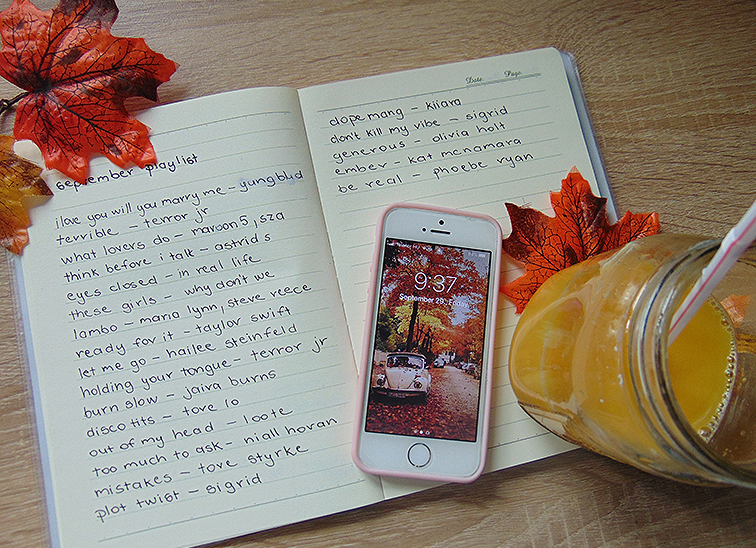 september playlist
i love you will you marry me - yungblud
terrible - terror jr
what lovers do - maroon 5, sza
think before i talk - astrid s
eyes closed - in real life
these girls - why don't we
lambo - maria lynn, steve reece
ready for it - taylor swift
let me go - hailee steinfeld
holding your tongue - terror jr
burn slow - jaira burns
disco tits - tove lo
out of my head - loote
too much to ask - niall horan
mistakes - tove styrke
plot twist - sigrid
Date Page
dopemang - kiiara
don't kill my vibe - sigrid
generous - olivia holt
ember - kat mcnamara
be real - phoebe ryan
9:37
September 29,